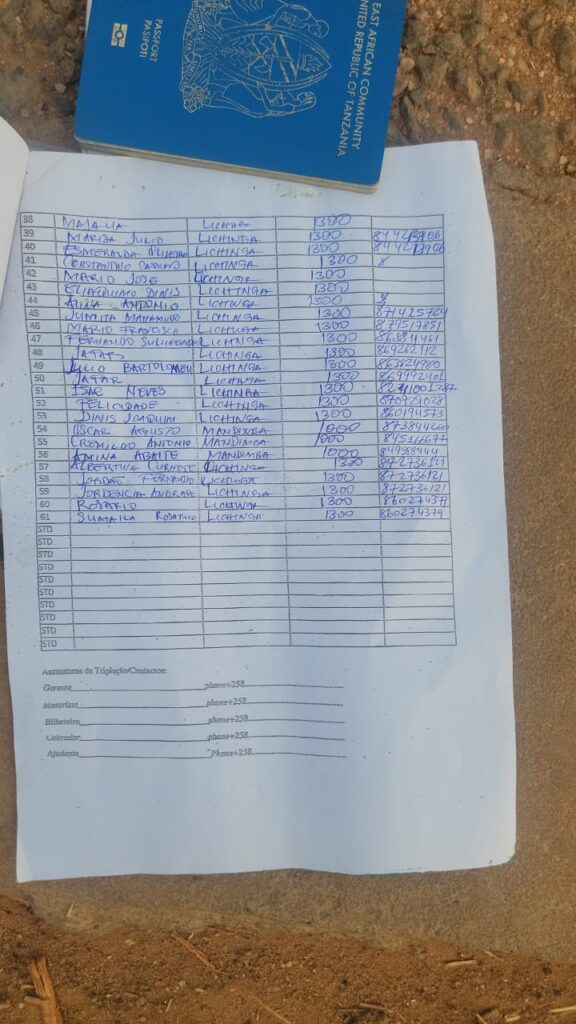 EAST AFRICAN COMMUNITY
UNITED REPUBLIC OF TANZANIA
PASSPORT
PASIPOTI
38 LICHINGA 1300
39 MARIZA JULIO LICHINGA 1300
40 ESMERALDA OLIVEIRA LICHINGA 1300
41 CONSTANTINO LICHINGA 1300 8
42 MARIO JOSE LICHINGA 1300
43 DINIS LICHINGA 1300
44 ALINA ANTONIO LICHINGA 1300 8
45 JUMITA MAHAMUDO LICHINGA 1300 871425724
46 MARIO FRANCISCO LICHINGA 1300 879517851
47 FERNANDO LICHINGA 1300
48 LICHINGA 1300 869262112
49 JULIO BARTOLOMEU LICHINGA 1300 863824980
50 LICHINGA 1300
51 ISAC NEVES LICHINGA 1300
52 FELICIDADE LICHINGA 1300 870421028
53 DINIS JOAQUIM LICHINGA 1300 860194573
54 OSCAR AGUSTO MANDIMBA 1000
55 CREMILDO ANTONIO MANDIMBA 1000
56 AMINA MANDIMBA 1000
57 ALBERTINA LICHINGA 1300 872736121
58 FERNANDO LICHINGA 1300 872736121
59 LICHINGA 1300 872736121
60 ROSARIO LICHINGA 1300 860274379
61 SUMAILA ROSARIO LICHINGA 1300 860274379
STD
STD
STD
STD
STD
STD
STD
STD
STD
STD
Assinaturas da Triplação/Contactos:
Gerente phone+258
Motorista phone+258
Bilheteiro phone+258
Cobrador phone+258
Ajudante Phone+258